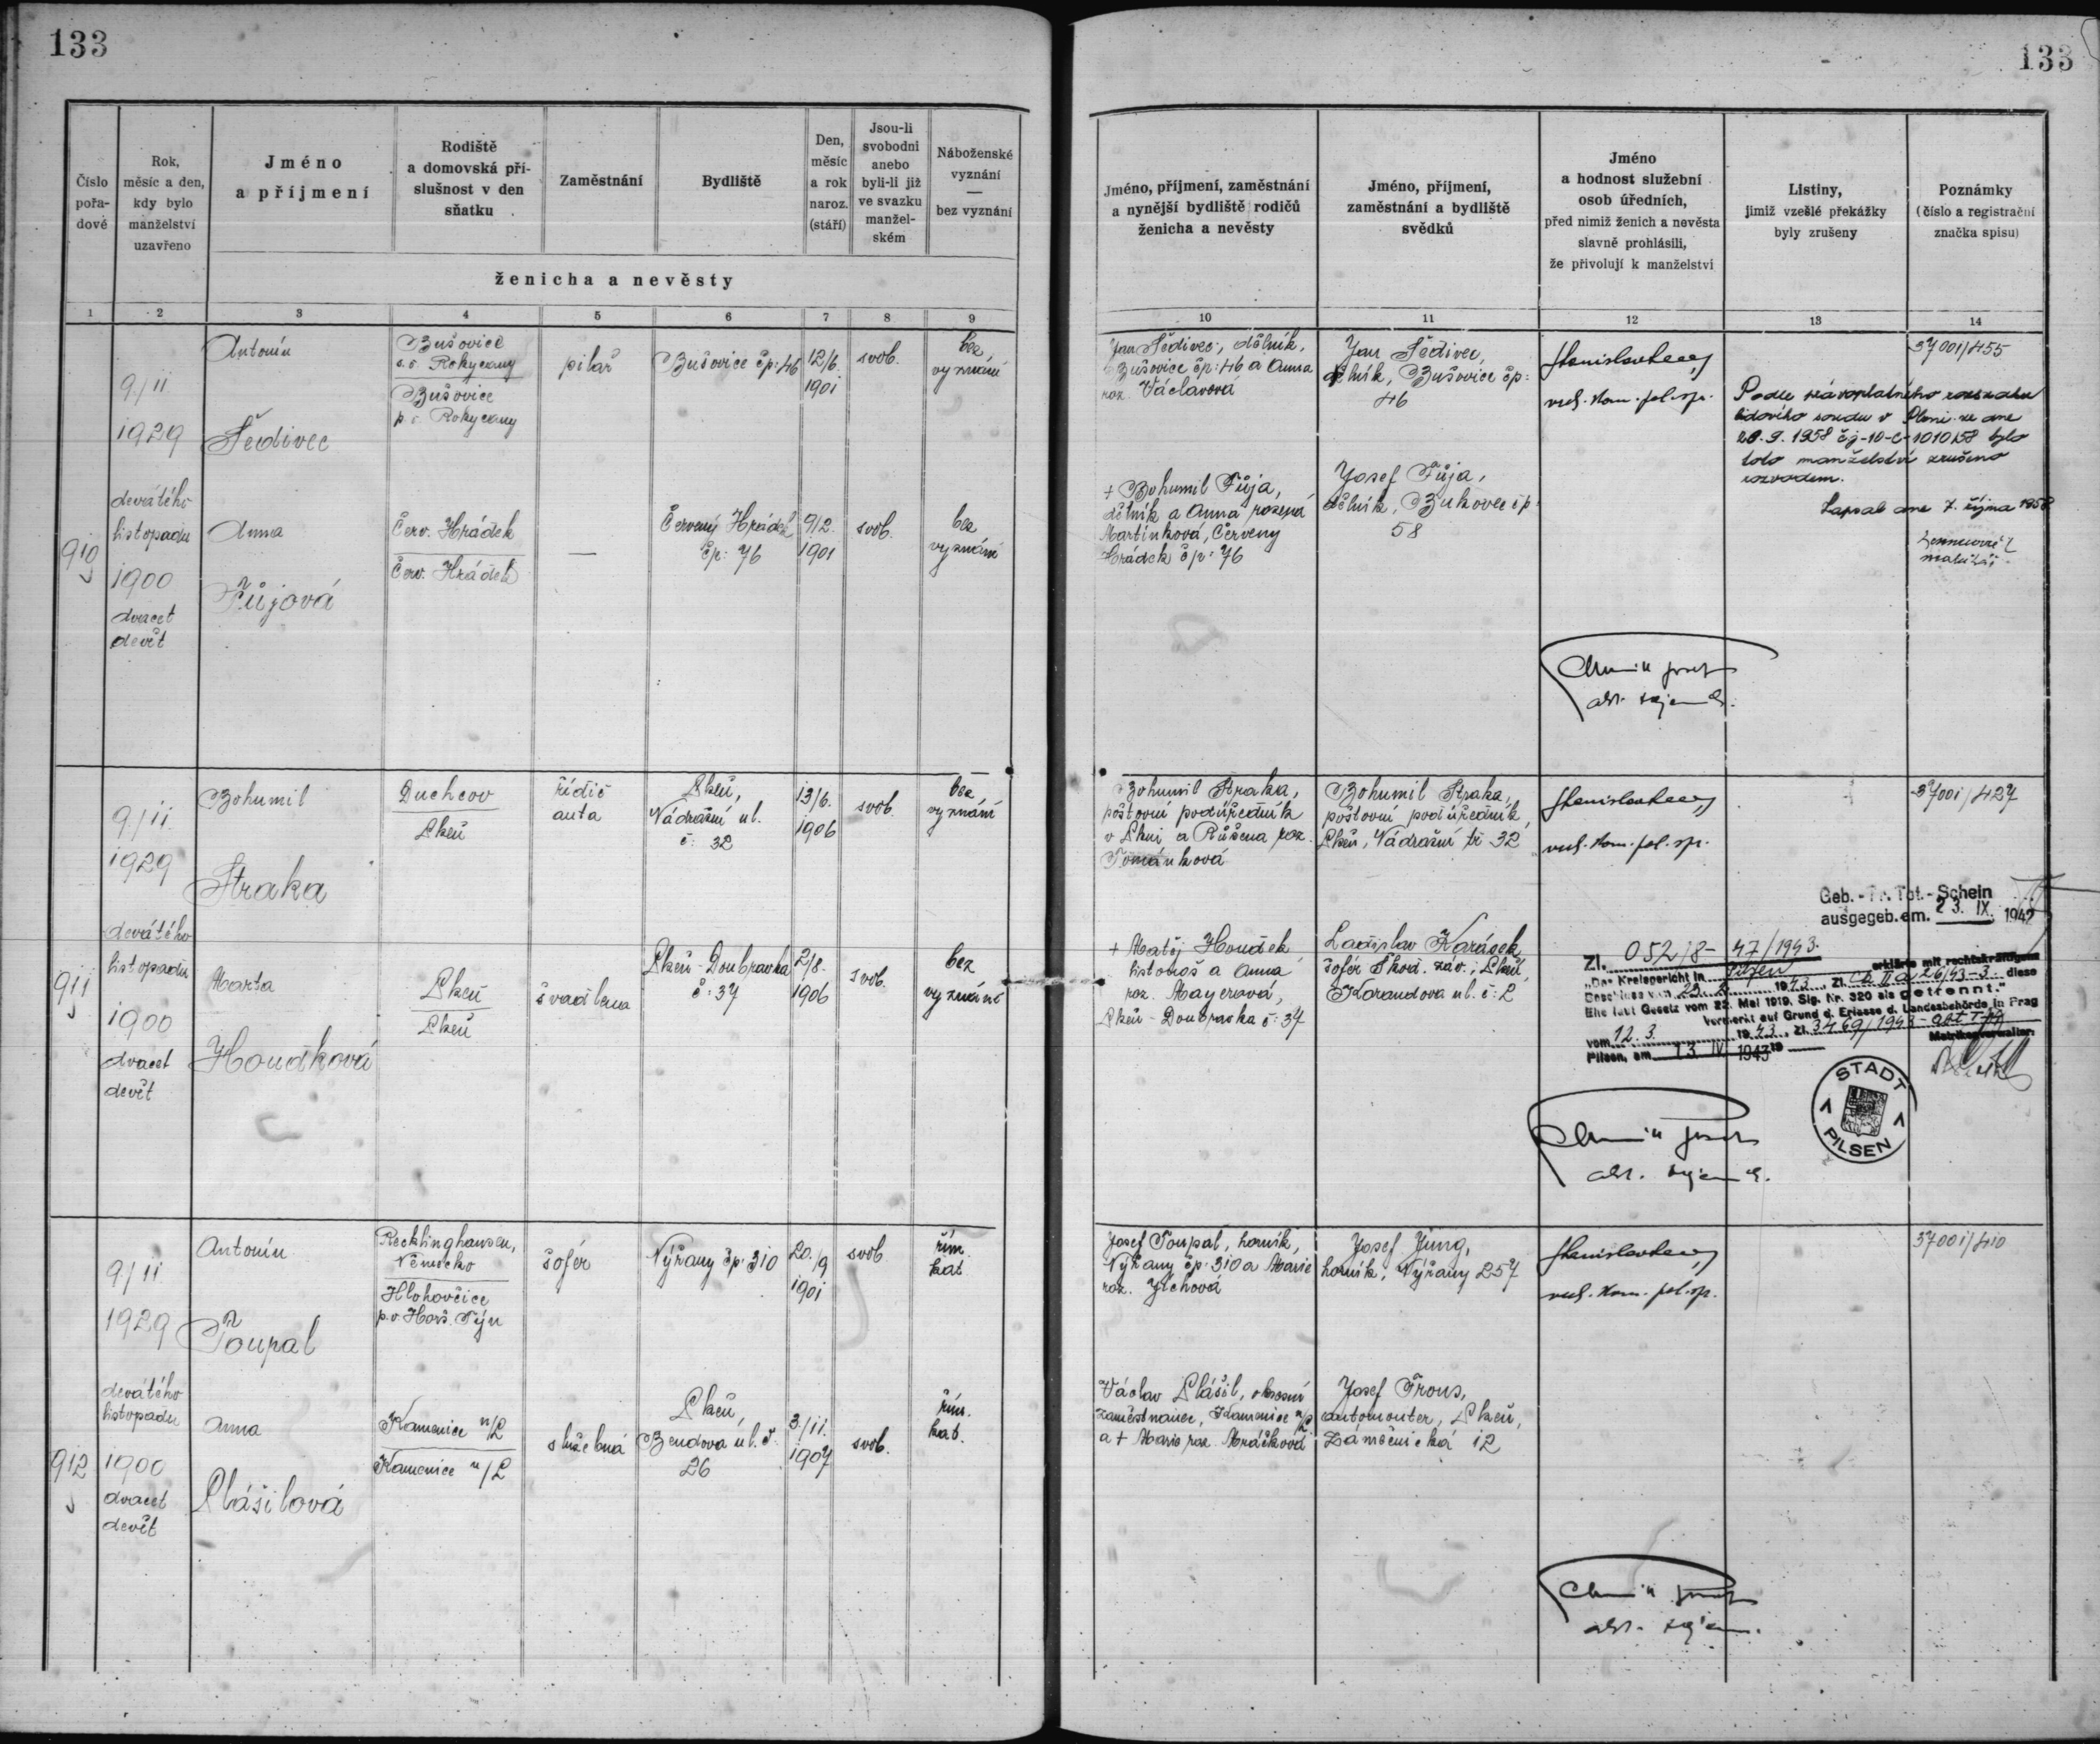 133
133
Číslo
pořa-
dové
Rok,
měsíc a den,
kdy bylo
manželství
uzavřeno
Jméno
a příjmení
Rodiště
a domovská pří-
slušnost v den
sňatku
Zaměstnání
Bydliště
Den,
měsíc
a rok
naroz.
(stáří)
Jsou-li
svobodni
anebo
byli-li již
ve svazku
manžel-
ském
Náboženské
vyznání
—
bez vyznání
ženicha a nevěsty
Jméno, příjmení, zaměstnání
a nynější bydliště rodičů
ženicha a nevěsty
Jméno, příjmení,
zaměstnání a bydliště
svědků
Jméno
a hodnost služební
osob úředních,
před nimiž ženich a nevěsta
slavně prohlásili,
že přivolují k manželství
Listiny,
jimiž vzešlé překážky
byly zrušeny
Poznámky
(číslo a registrační
značka spisu)
1 2 3 4 5 6 7 8 9
10 11 12 13 14
910
9/11
1929
devátého
listopadu
1900
dvacet
devět
Antonín
Šedivec
Bušovice
s. o. Rokycany
Bušovice
p. o. Rokycany
pilař
Bušovice čp: 46
12/6.
1901
svob.
bez
vyznání
Jan Šedivec, dělník,
Bušovice čp: 46 a Anna
roz. Václavová
Jan Šedivec,
dělník, Bušovice čp:
46
vrch. kom. pol. spr.
37001/455
Podle právoplatného rozsudku
lidového soudu v Plzni ze dne
20. 9. 1958 čj-10-C-1010/58 bylo
toto manželství zrušeno
rozvodem.
Zapsal dne 7. října 1958
Anna
Fůjová
Červ. Hrádek
Červ. Hrádek
—
Červený Hrádek
čp: 76
9/2.
1901
svob.
bez
vyznání
+ Bohumil Fůja,
dělník a Anna rozená
Martínková, Červený
Hrádek čp: 76
Josef Fůja,
dělník, Bukovec čp
58
911
9/11.
1929
devátého
listopadu
1900
dvacet
devět
Bohumil
Straka
Duchcov
Plzeň
řidič
auta
Plzeň,
Nádražní ul.
č: 32
13/6.
1906
svob.
bez
vyznání
Bohumil Straka,
poštovní podúředník
v Plzni a Růžena roz.
Tománková
Bohumil Straka,
poštovní podúředník,
Plzeň, Nádražní tř 32
vrch. kom. pol. spr.
37001/427
Geb.-Tr. Tot.-Schein
ausgegeb. am. 23. IX. 1942
Marta
Houdková
Plzeň
Plzeň
švadlena
Plzeň-Doubravka
č: 37
2/8.
1906
svob.
bez
vyznání
+ Matěj Houdek,
listonoš a Anna
roz. Mayerová,
Plzeň-Doubravka č: 37
Ladislav Karásek,
šofér Škod. záv., Plzeň,
Karandova ul. č: 2
Zl. 052/8- 47/1943.
"Das Kreisgericht in Pilsen erklärte mit rechtskräftigem
Beschluss vom 23. 2. 1943. Zl. Ck II a 26/43-3. diese
Ehe laut Gesetz vom 22. Mai 1919, Slg. Nr. 320 als getrennt."
Vermerkt auf Grund d. Erlasse d. Landesbehörde in Prag
vom 12. 3. 1943, Zl. 3469/1943
Pilsen, am 13. IV. 1943
Matrikenverwalter:
STADT
PILSEN
912
9/11
1929
devátého
listopadu
1900
dvacet
devět
Antonín
Toupal
Recklinghausen,
Německo
Hlohovčice
p. o. Horš. Týn
šofér
Nýřany čp: 310
20./9
1901
svob
řím.
kat
Josef Toupal, horník,
Nýřany čp: 310 a Marie
roz. Jíchová
Josef Jung,
horník, Nýřany 257
vrch. kom. pol. spr.
37001/410
Anna
Plášilová
Kamenice n/L
Kamenice n/L
služebná
Plzeň,
Bendova ul. č.
26
3./11.
1907
svob.
řím.
kat.
Václav Plášil, okresní
zaměstnanec, Kamenice n/L
a + Marie roz. Mráčková
Josef Trous,
automonter, Plzeň,
Zámečnická 12